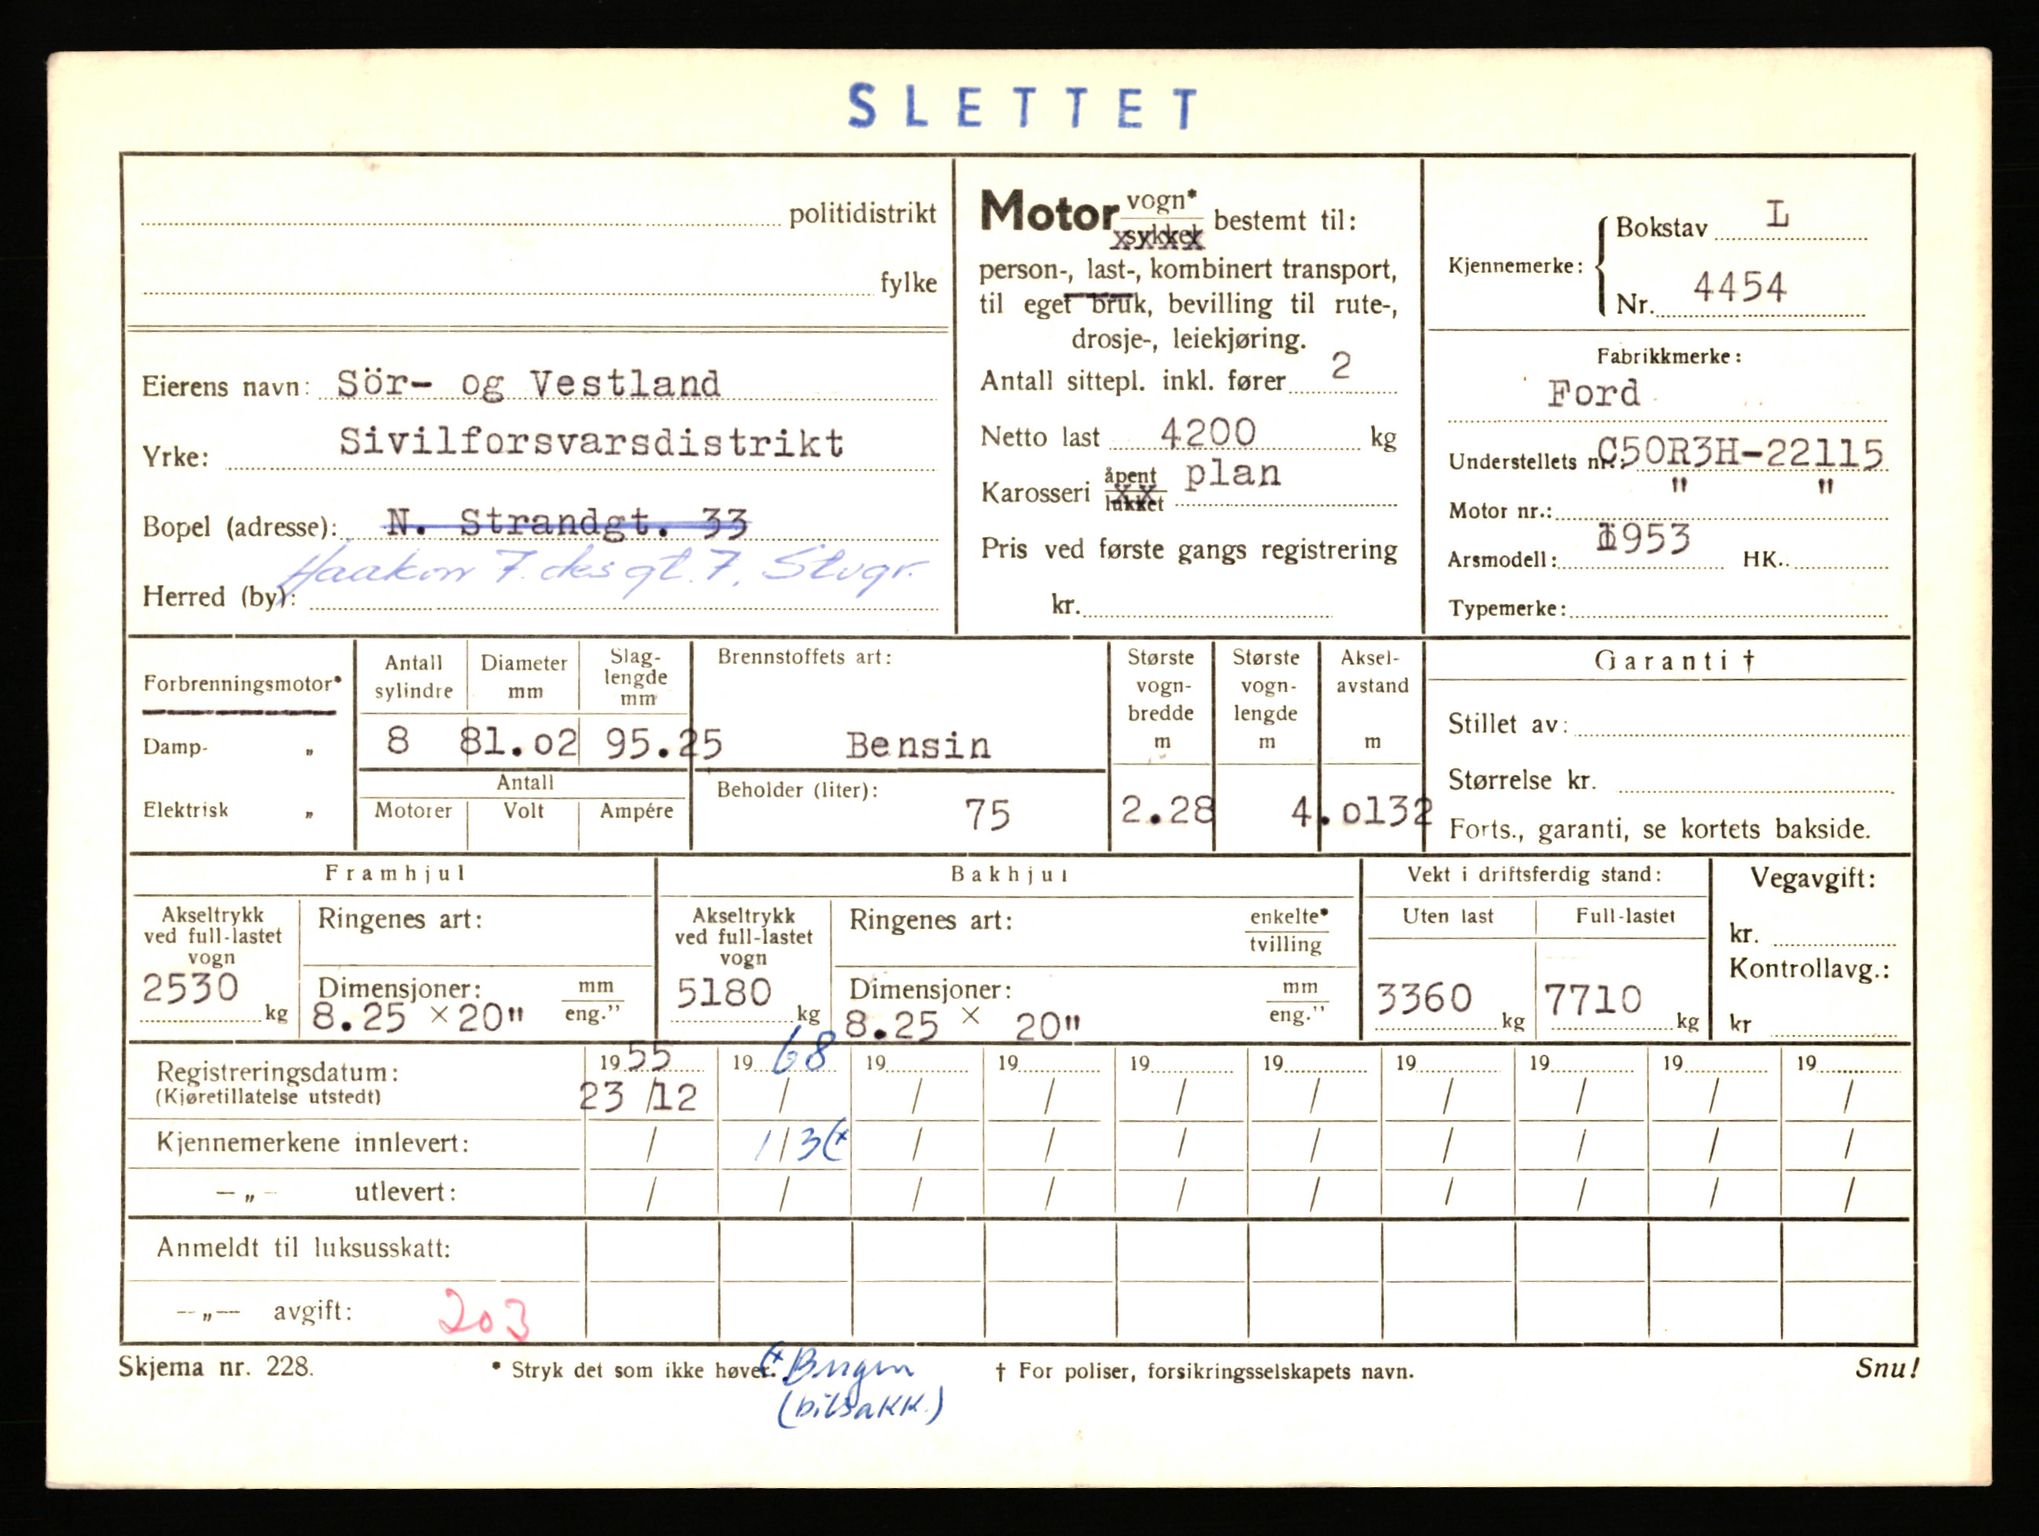 SLETTET
politidistrikt
fylke
Eierens navn: Sör- og Vestland
Yrke: Sivilforsvarsdistrikt
Bopel (adresse): N. Strandgt. 33
Haakon 7. des gt. 7, Stvgr.
Herred (by):
Motor vogn* sykkel bestemt til:
person-, last-, kombinert transport,
til eget bruk, bevilling til rute-,
drosje-, leiekjøring.
Antall sittepl. inkl. fører 2
Netto last 4200 kg
Karosseri åpent lukket plan
Pris ved første gangs registrering
kr.
Kjennemerke: Bokstav L
Nr. 4454
Fabrikkmerke:
Ford
Understellets nr.: C50R3H-22115
" "
Motor nr.:
Arsmodell: 1953 HK.
Typemerke:
Forbrenningsmotor*
Damp- „
Elektrisk „
Antall sylindre
8
Diameter mm
81.02
Slag-lengde mm
95.25
Antall
Motorer Volt Ampére
Brennstoffets art:
Bensin
Beholder (liter):
75
Største vogn-bredde m
2.28
Største vogn-lengde m
Aksel-avstand m
4.0132
Garanti †
Stillet av:
Størrelse kr.
Forts., garanti, se kortets bakside.
Framhjul
Akseltrykk ved full-lastet vogn
2530 kg
Ringenes art:
Dimensjoner: mm eng."
8.25 × 20"
Bakhjul
Akseltrykk ved full-lastet vogn
5180 kg
Ringenes art: enkelte* tvilling
Dimensjoner: mm eng."
8.25 × 20"
Vekt i driftsferdig stand:
Uten last Full-lastet
3360 kg 7710 kg
Vegavgift:
kr.
Kontrollavg.:
kr
Registreringsdatum: 1955 1968 19 19 19 19 19 19 19 19
(Kjøretillatelse utstedt) 23/12 / / / / / / / / /
Kjennemerkene innlevert: / 1/3 (* / / / / / / / /
—„— utlevert: / / / / / / / / / /
Anmeldt til luksusskatt:
—„— avgift: 203
Skjema nr. 228. * Stryk det som ikke høver. † For poliser, forsikringsselskapets navn. Snu!
(bilsakk.)